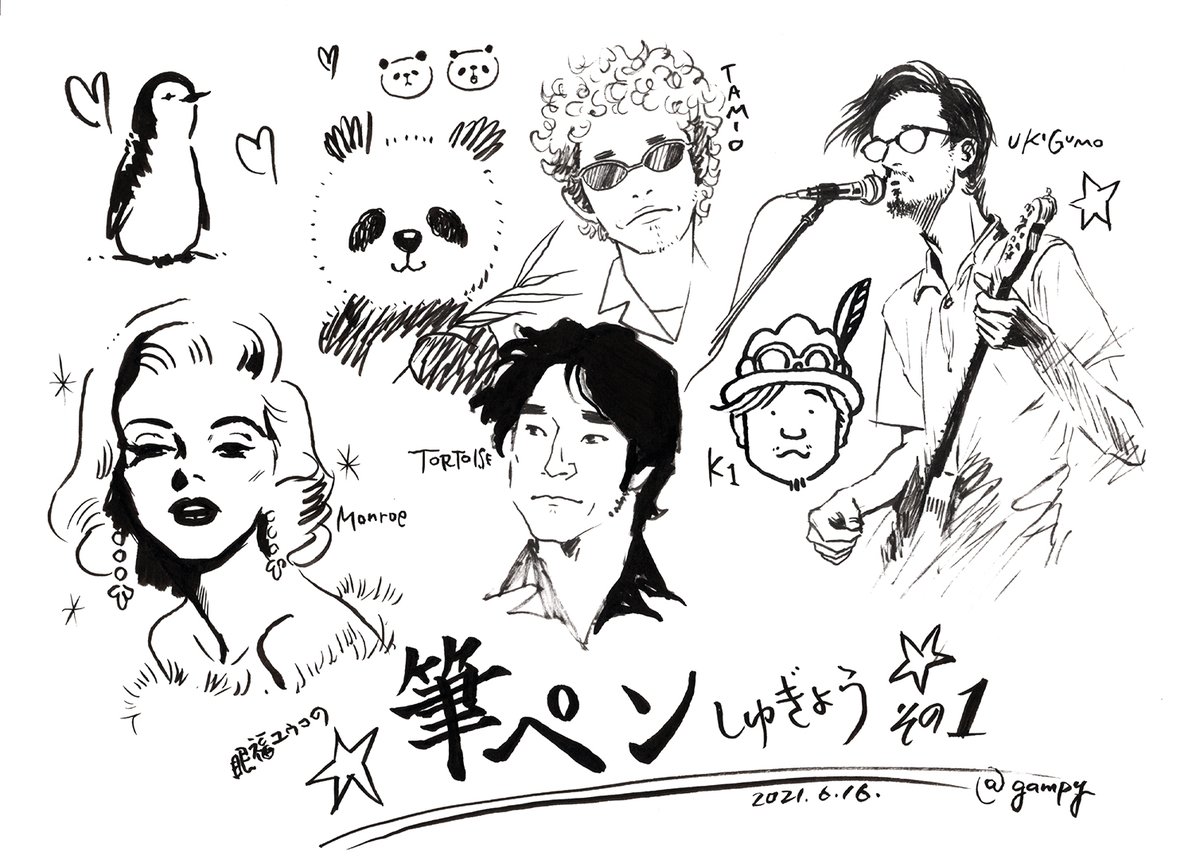 TAMIO
UKIGUMO
TORTOISE
K1
Monroe
眼福ユウコの
筆ペンしゅぎょう その1
2021.6.16.
@gampy